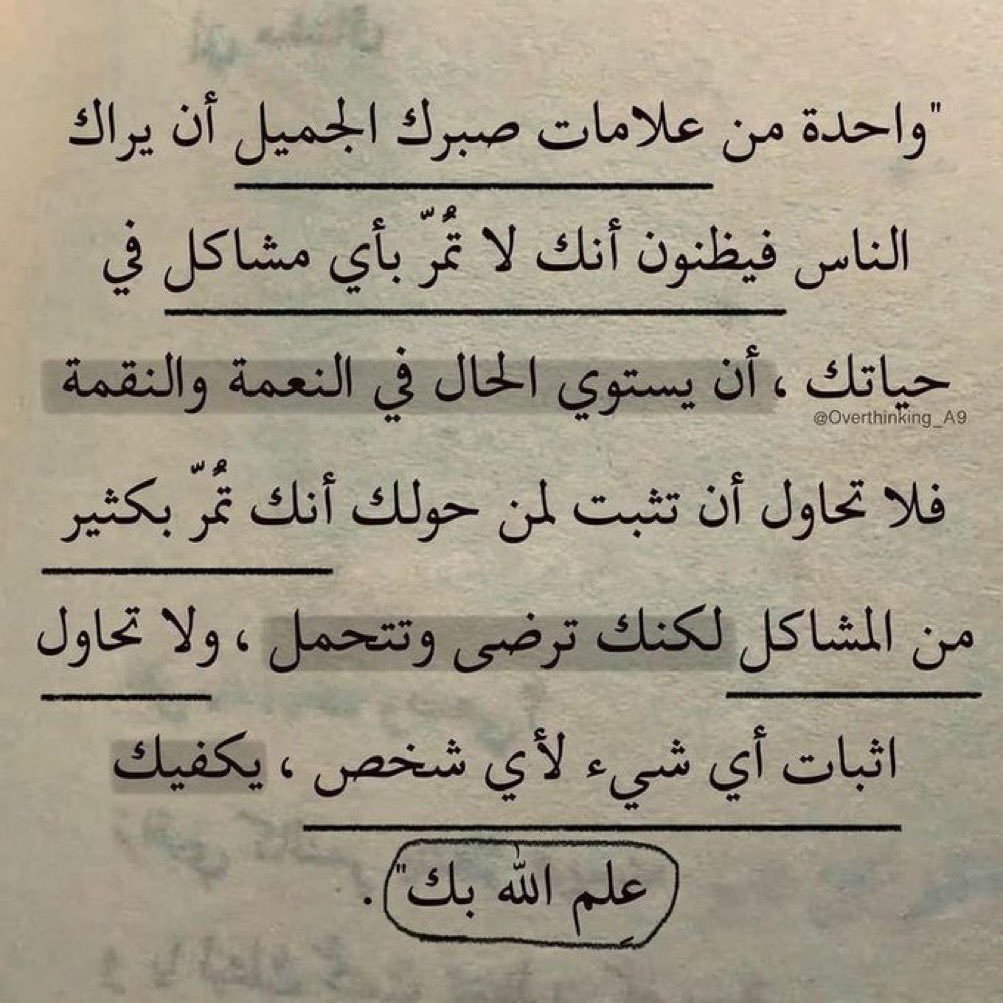 "واحدة من علامات صبرك الجميل أن يراك
الناس فيظنون أنك لا تمُرّ بأي مشاكل في
حياتك ، أن يستوي الحال في النعمة والنقمة
@Overthinking_A9
فلا تحاول أن تثبت لمن حولك أنك تمُرّ بكثير
من المشاكل لكنك ترضى وتتحمل ، ولا تحاول
اثبات أي شيء لأي شخص ، يكفيك
عِلم الله بك" .